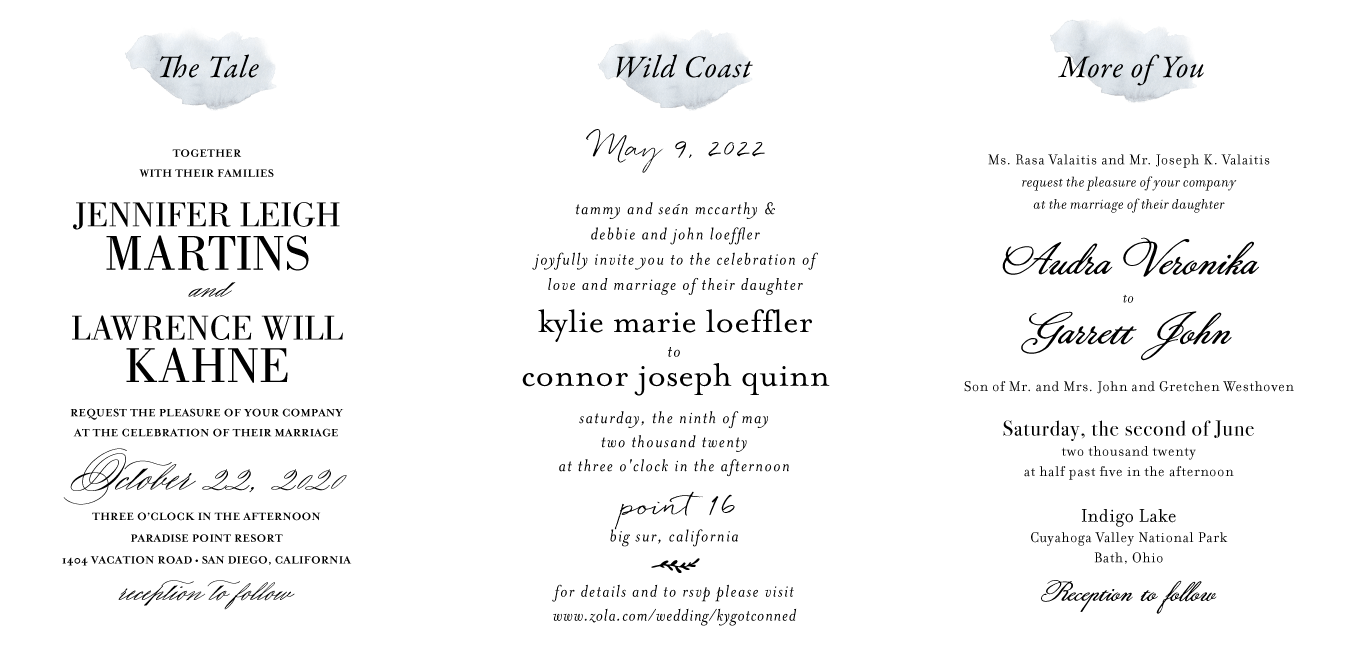 The Tale
TOGETHER
WITH THEIR FAMILIES
JENNIFER LEIGH
MARTINS
and
LAWRENCE WILL
KAHNE
REQUEST THE PLEASURE OF YOUR COMPANY
AT THE CELEBRATION OF THEIR MARRIAGE
October 22, 2020
THREE O'CLOCK IN THE AFTERNOON
PARADISE POINT RESORT
1404 VACATION ROAD • SAN DIEGO, CALIFORNIA
reception to follow
Wild Coast
May 9, 2022
tammy and seán mccarthy &
debbie and john loeffler
joyfully invite you to the celebration of
love and marriage of their daughter
kylie marie loeffler
to
connor joseph quinn
saturday, the ninth of may
two thousand twenty
at three o'clock in the afternoon
point 16
big sur, california
for details and to rsvp please visit
www.zola.com/wedding/kygotconned
More of You
Ms. Rasa Valaitis and Mr. Joseph K. Valaitis
request the pleasure of your company
at the marriage of their daughter
Audra Veronika
to
Garrett John
Son of Mr. and Mrs. John and Gretchen Westhoven
Saturday, the second of June
two thousand twenty
at half past five in the afternoon
Indigo Lake
Cuyahoga Valley National Park
Bath, Ohio
Reception to follow